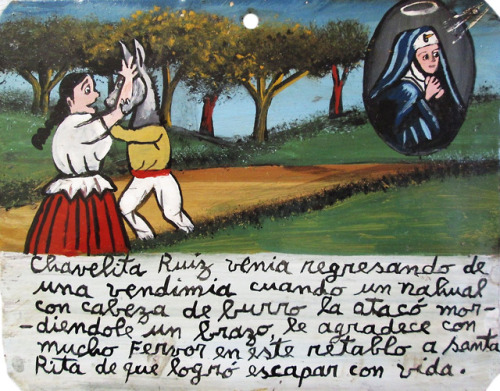 Chavelita Ruiz venia regresando de
una vendimia cuando un nahual
con cabeza de burro la atacó mor-
-diendole un brazo, le agradece con
mucho Fervor en éste retablo a santa
Rita de que logró escapar con vida.